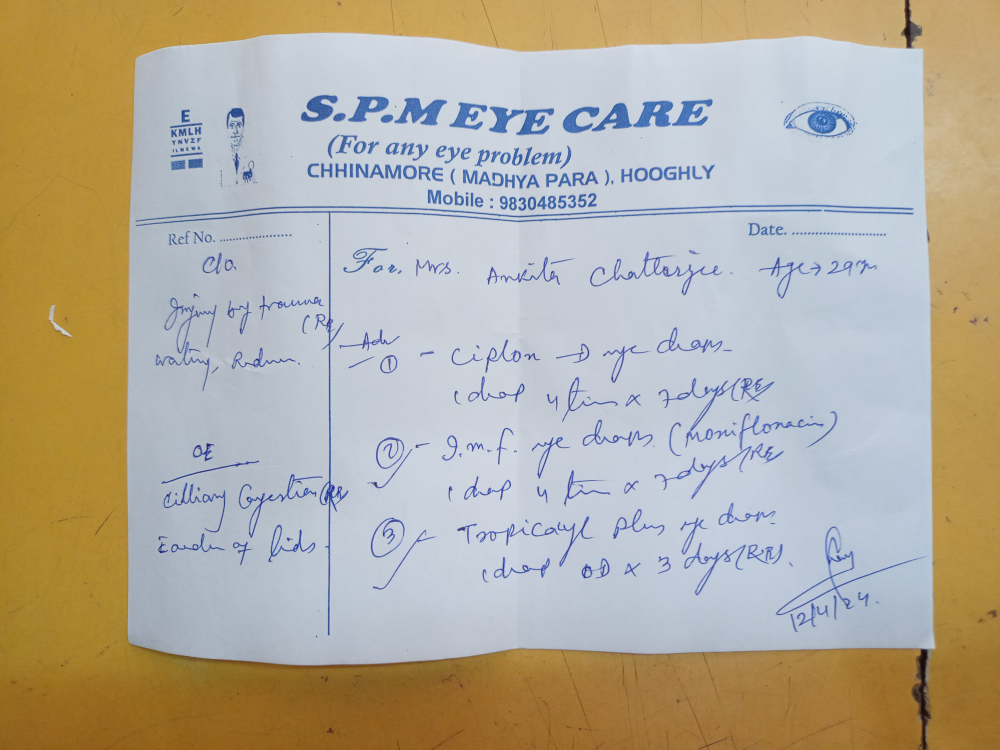 E
KMLH
YNVZF
S.P.M EYE CARE
(For any eye problem)
CHHINAMORE ( MADHYA PARA ), HOOGHLY
Mobile : 9830485352
Ref No. ....................
Date. ..........................
For, Mrs. Ankita Chatterjee. Age → 29
C/o.
Injury by trauma
(RE)
watering, Redness.
Adv
① - Ciplox - D eye drops
1 drop 4 times x 7 days (RE)
② - I.m.f. eye drops. (moxifloxacin)
1 drop 4 times x 7 days (RE)
③ - Tropicacyl plus eye drops
1 drop OD x 3 days (RE).
OE
Cilliary Congestion (RE)
of lids.
12/4/24.